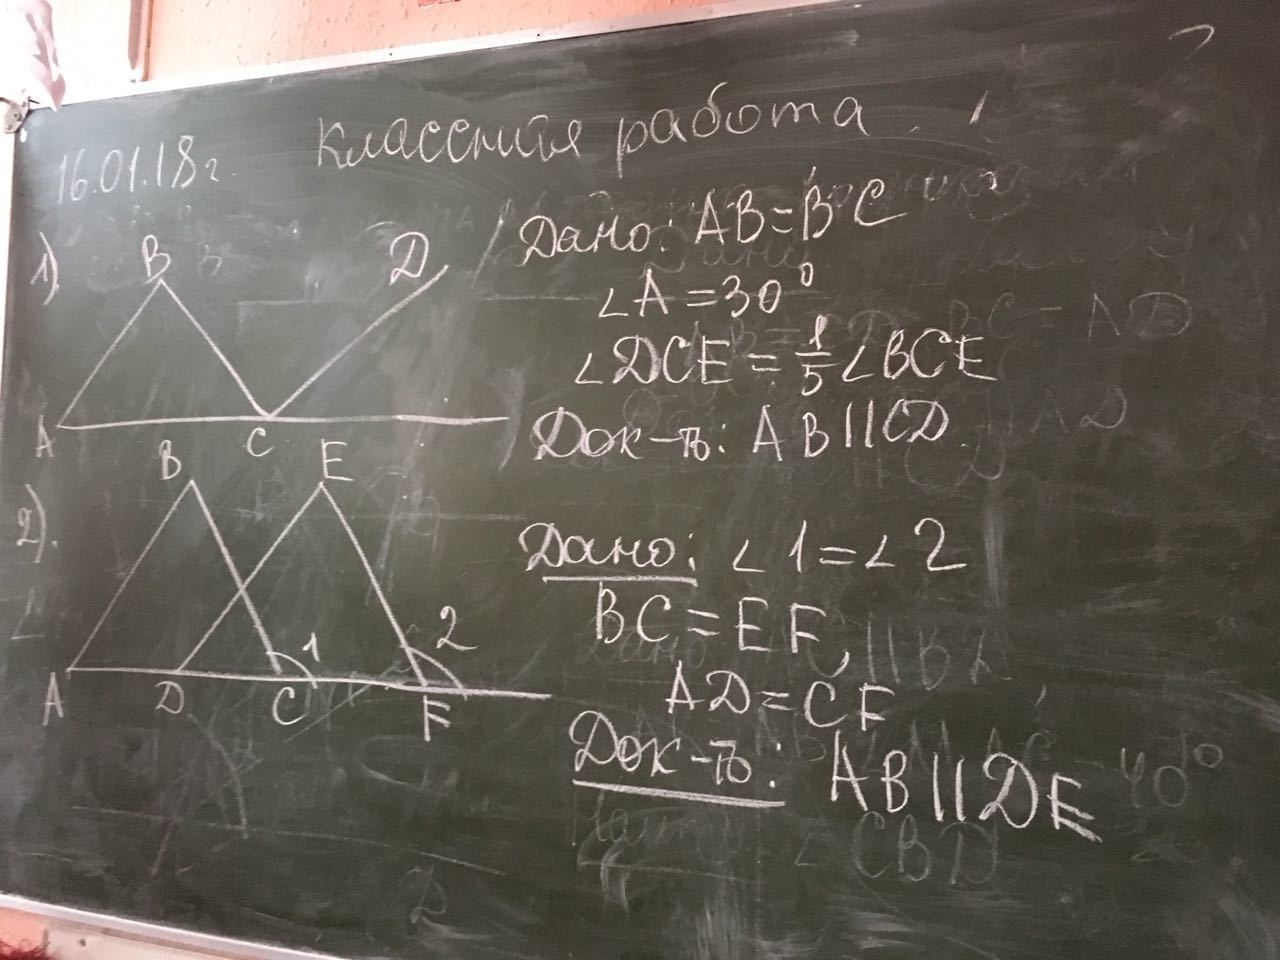 Классная работа
16.01.18г.
1)
B
D
A
C
Дано: AB=BC
∠A=30⁰
∠DCE = 1/5 ∠BCE
Док-ть: AB||CD
2).
B
E
1
2
A
D
C
F
Дано: ∠1=∠2
BC=EF,
AD=CF
Док-ть: AB||DE